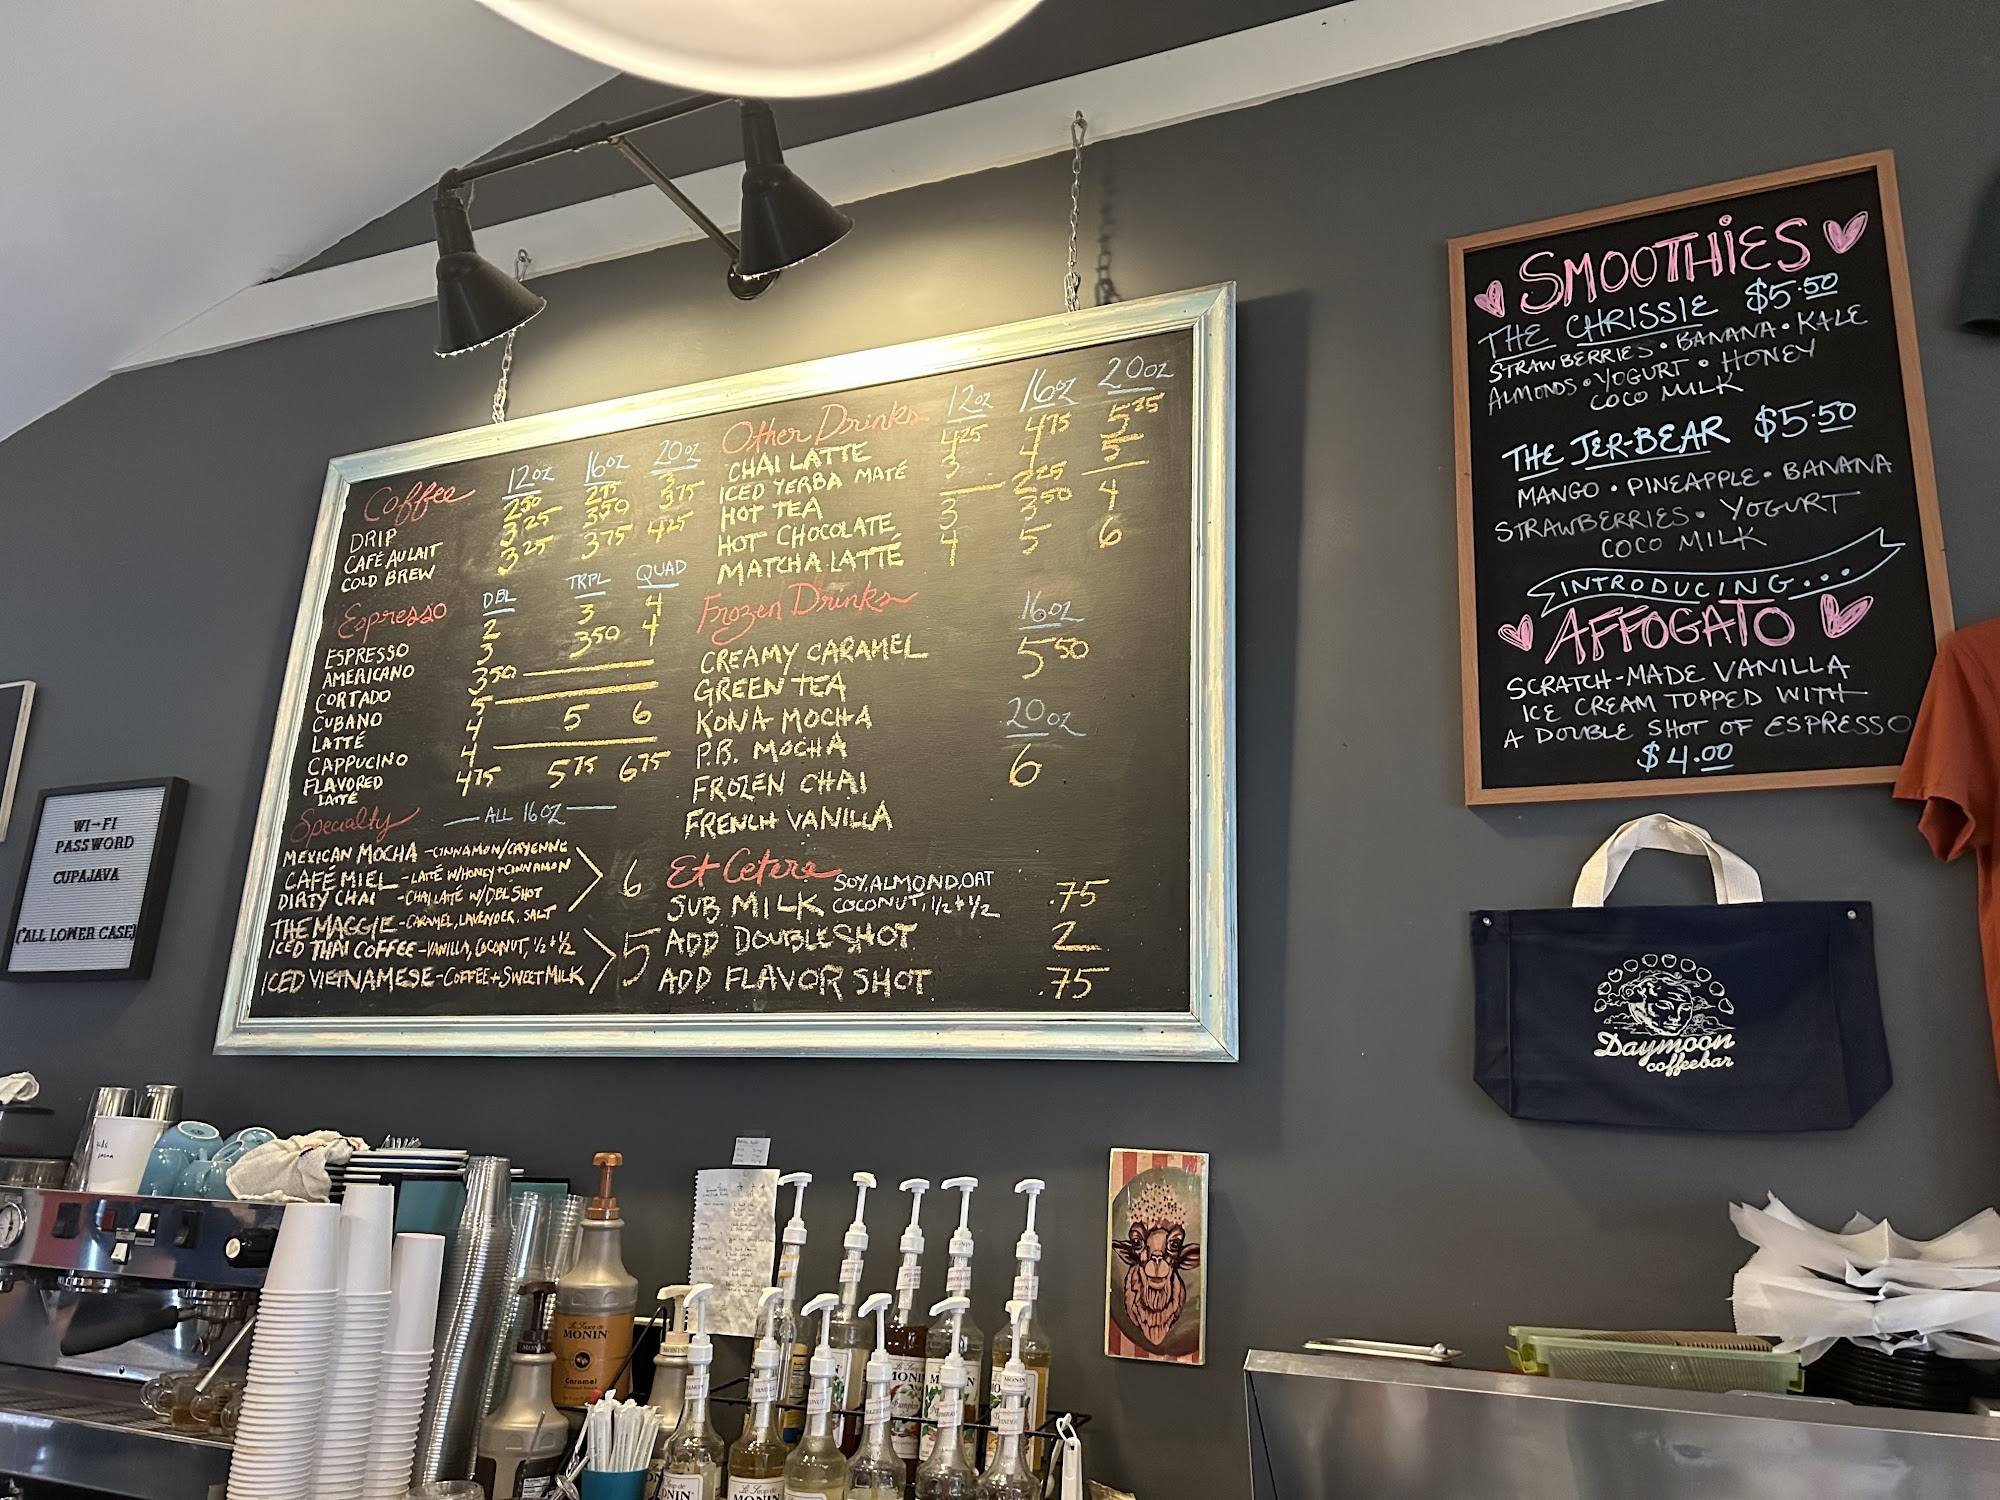 Coffee 12oz 16oz 20oz
DRIP 250 275 3
CAFÉ AU LAIT 325 350 375
COLD BREW 325 375 425
Espresso DBL TRPL QUAD
ESPRESSO 2 3 4
AMERICANO 3 350 4
CORTADO 350
CUBANO 5
LATTÉ 4 5 6
CAPPUCINO 4
FLAVORED LATTE 475 575 675
Specialty — ALL 16OZ —
MEXICAN MOCHA - CINNAMON/CAYENNE
CAFÉ MIEL - LATTÉ W/HONEY + CINNAMON
DIRTY CHAI - CHAI LATTÉ W/DBL SHOT
6
THE MAGGIE - CARAMEL, LAVENDER, SALT
ICED THAI COFFEE - VANILLA, COCONUT, 1/2 + 1/2
ICED VIETNAMESE - COFFEE + SWEET MILK
5
Other Drinks 12oz 16oz 20oz
CHAI LATTE 425 475 525
ICED YERBA MATÉ 3 4 5
HOT TEA — 225 —
HOT CHOCOLATE 3 350 4
MATCHA LATTÉ 4 5 6
Frozen Drinks 16oz
CREAMY CARAMEL 550
GREEN TEA
KONA MOCHA 20oz
P.B. MOCHA
FROZEN CHAI 6
FRENCH VANILLA
Et Cetera
SUB MILK SOY, ALMOND, OAT
COCONUT, 1/2 + 1/2 .75
ADD DOUBLE SHOT 2
ADD FLAVOR SHOT .75
SMOOTHIES
THE CHRISSIE $5.50
STRAWBERRIES • BANANA • KALE
ALMONDS • YOGURT • HONEY
COCO MILK
THE JER-BEAR $5.50
MANGO • PINEAPPLE • BANANA
STRAWBERRIES • YOGURT
COCO MILK
INTRODUCING...
AFFOGATO
SCRATCH-MADE VANILLA
ICE CREAM TOPPED WITH
A DOUBLE SHOT OF ESPRESSO
$4.00
WI-FI
PASSWORD
CUPAJAVA
(*ALL LOWER CASE)
Daymoon
coffeebar
MONIN
Caramel
MONIN
MONIN
MONIN
MONIN